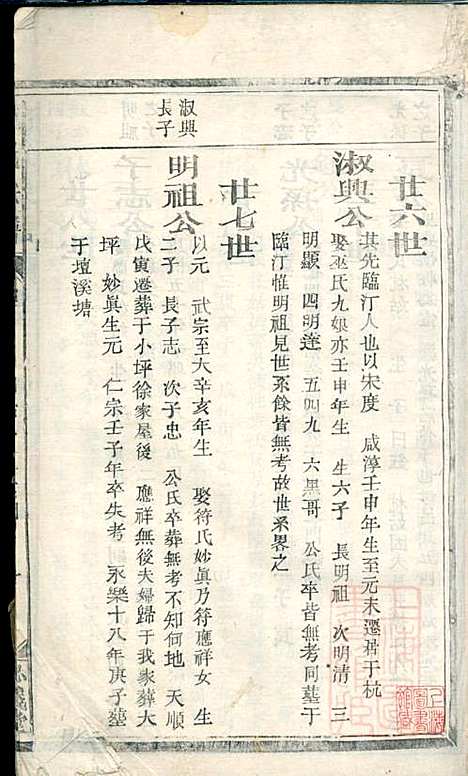 廿六世
淑興公
其先臨汀人也以宋度 咸淳壬申年生至元末遷 于杭
娶巫氏九娘亦壬申年生 生六子 長明祖 次明清 三
明顯 四明達 五四九 六黑哥 公氏卒皆無考同墓于
臨汀惟明祖見世系餘皆無考故世系畧之
廿七世
淑興
長子
明祖公
以元 武宗至大辛亥年生 娶符氏妙眞乃符應祥女 生
二子 長子志 次子忠 公氏卒葬無考不知何地 天順
戊寅遷葬于小坪徐家屋後 應祥無後夫婦歸于我家葬大
坪 妙眞生元 仁宗壬子年卒失考 永樂十八年庚子墓
于壇溪塘